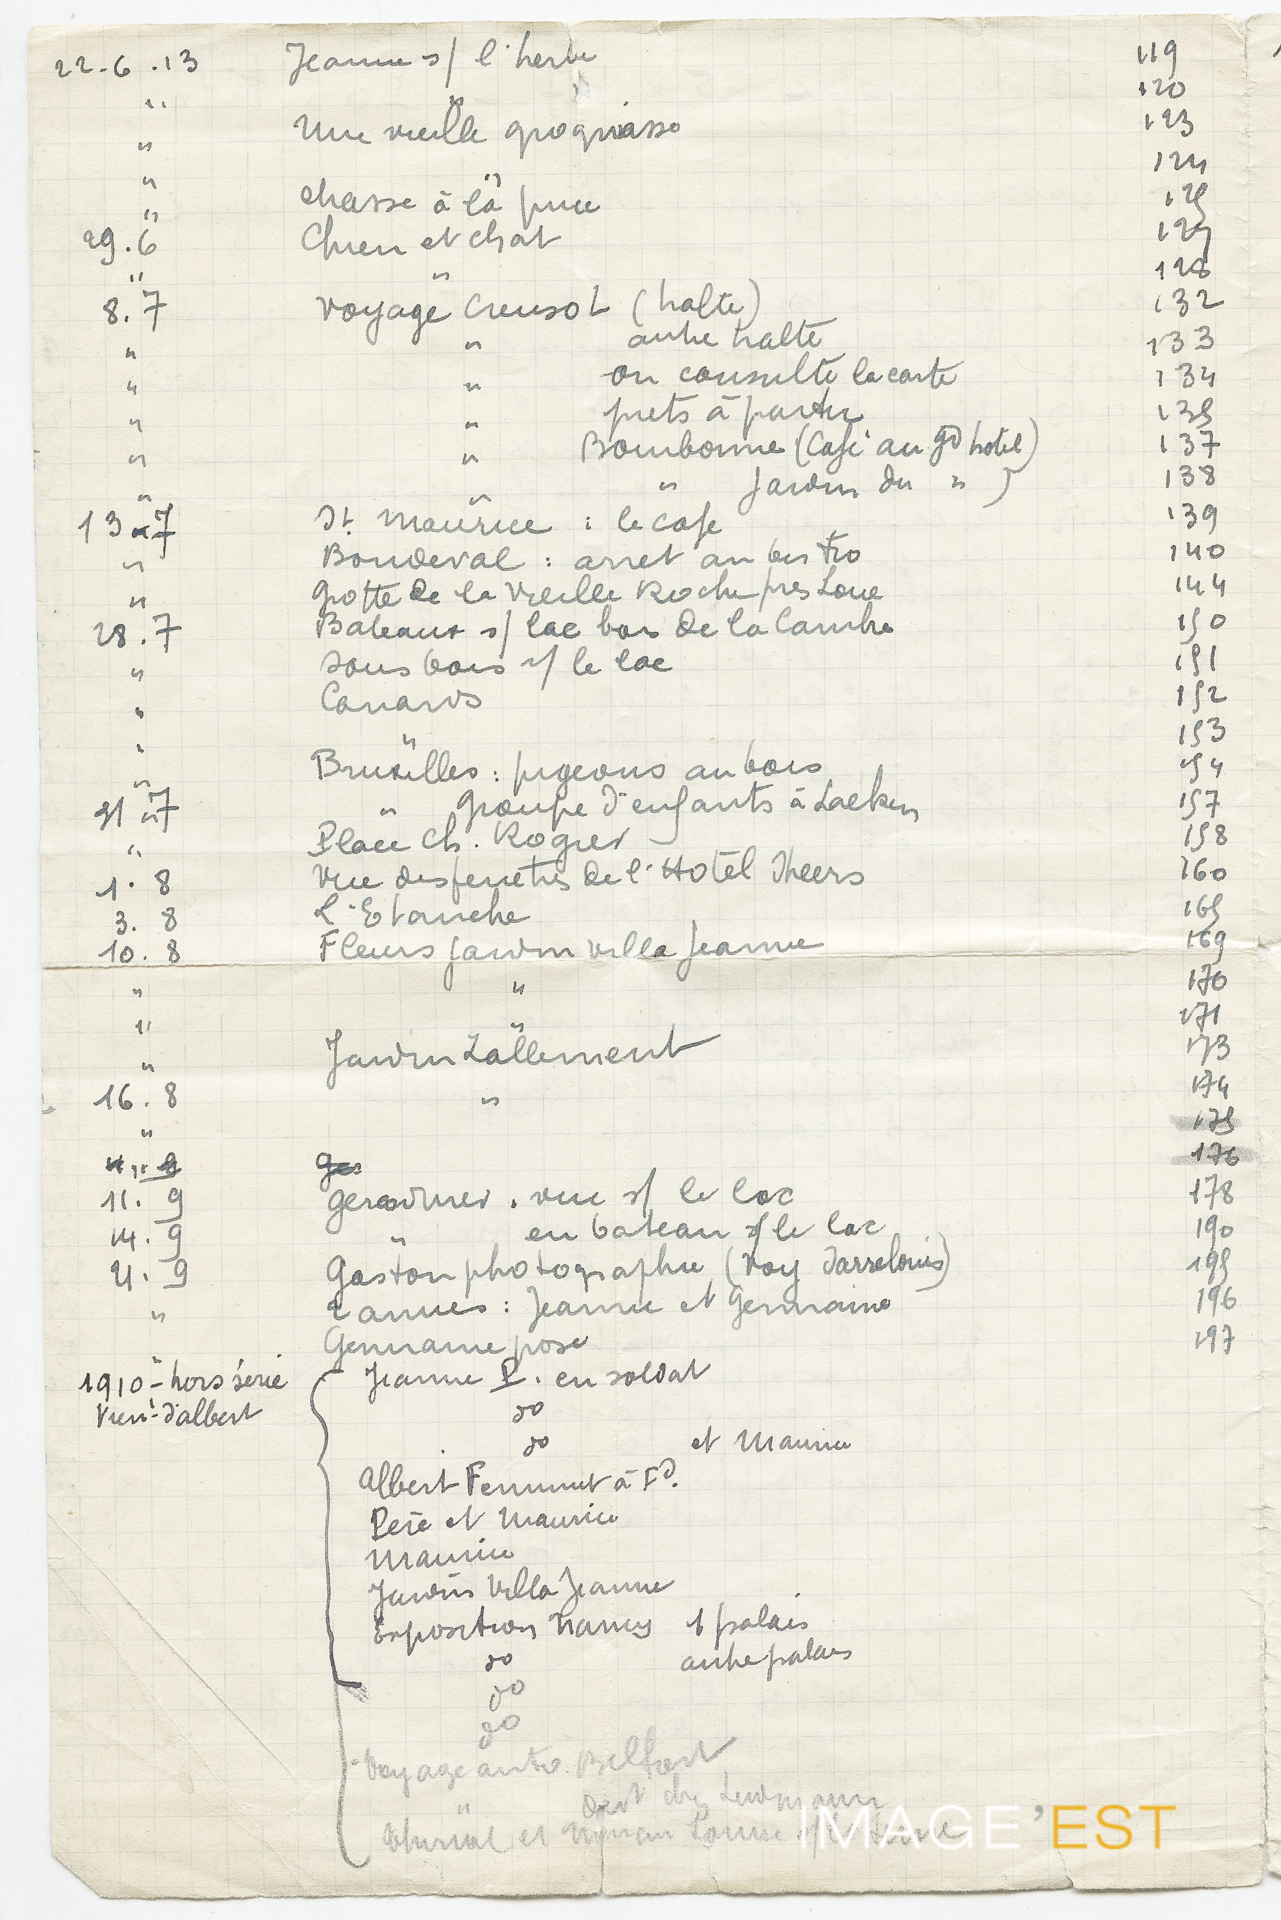 22.6.13 Jeanne s/ l'herbe 119
" " 120
" Une vieille grognasse 123
" " 124
" chasse à la puce 125
29.6 Chien et chat 127
" " 128
8.7 Voyage Creusot (halte) 132
" " autre halte 133
" " on consulte la carte 134
" " prets à partir 135
" " Bourbonne (Café au gd hotel) 137
" " " Jardin du " ) 138
13.7 St. Maurice : le cafe 139
" Bondeval : arret au bistro 140
" Grotte de la Vieille Roche pres Loue 144
28.7 Bateaux s/ lac bois de la Cambre 150
" Sous bois s/ le lac 151
" Canards 152
" " 153
" Bruxelles : pigeons au bois 154
31.7 " groupe d'enfants à Laeken 157
" Place Ch. Rogier 158
1.8 Vue des fenetres de l'Hotel Sheers 160
3.8 L'Etanche 165
10.8 Fleurs Jardin villa Jeanne 169
" " 170
" " 171
" Jardin Lallement 173
16.8 " 174
" 175
11.9 Ger 176
11.9 Gerardmer. vue s/ le lac 178
14.9 " en bateau s/ le lac 190
21.9 Gaston photographie (Voy Sarrelouis) 195
" Vannes : Jeanne et Germaine 196
" Germaine pose 197
1910 - hors série Jeanne P. en soldat
Vient d'albert do
do et Maurice
Albert Femmut à Fd.
Père et Maurice
Maurice
Jardin Villa Jeanne
Exposition Nancy 1 palais
do autre palais
do
do
Voyage auto Belfort
" dert chez
et
IMAGE'EST